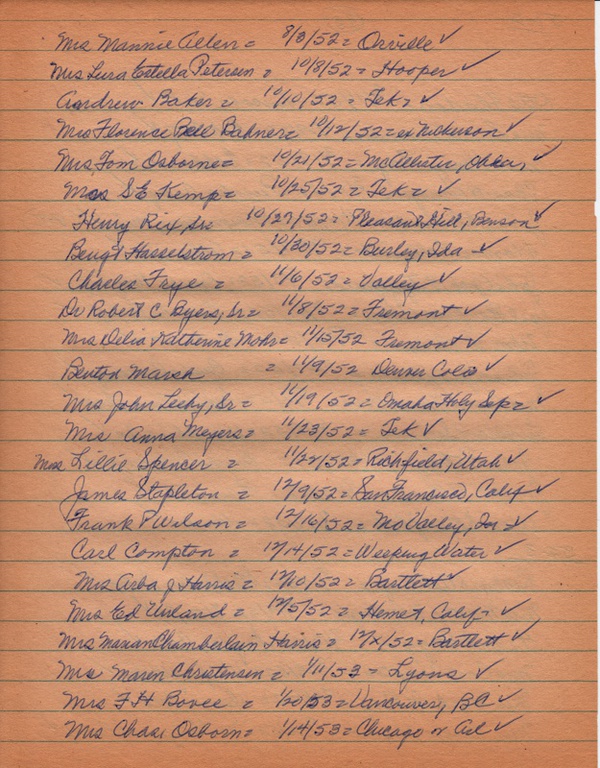 Mrs Mannie Allen = 8/8/52 = Orville ✓
Mrs Lura Estella Petersen = 10/8/52 = Hooper ✓
Andrew Baker = 10/10/52 = Tek = ✓
Mrs Florence Bell Bahner = 10/12/52 = ex Nickerson ✓
Mrs Tom Osborne = 10/21/52 = McAllister, Okla, ✓
Mrs S E Kemp = 10/25/52 = Tek = ✓
Henry Rix, Sr = 10/27/52 = Pleasant Hill, Benson ✓
Bengt Hasselstrom = 10/30/52 = Burley, Ida - ✓
Charles Faye = 11/6/52 = Valley ✓
Dr Robert C. Byers, Sr = 11/8/52 = Fremont ✓
Mrs Delia Katherine Mohr = 11/15/52 Fremont ✓
Benton Marsh = 11/9/52 Denver Colo ✓
Mrs John Leahy, Sr = 11/19/52 = Omaha Holy Sep = ✓
Mrs Anna Meyers = 11/23/52 = Tek ✓
Mrs Lillie Spencer = 11/22/52 = Richfield, Utah ✓
James Stapleton = 12/9/52 = San Francisco, Calif ✓
Frank P Wilson = 12/16/52 = Mo Valley, Ia = ✓
Carl Compton = 12/14/52 = Weeping Water ✓
Mrs Arba J Harris = 12/10/52 = Bartlett ✓
Mrs Ed Unland = 12/5/52 = Hemet, Calif - ✓
Mrs Marian Chamberlain Harris = 12/x/52 = Bartlett ✓
Mrs Maren Christensen = 1/11/53 = Lyons ✓
Mrs F H Bovee = 1/20/53 = Vancouver, BC ✓
Mrs Chas. Osborn = 1/14/53 = Chicago or ✓